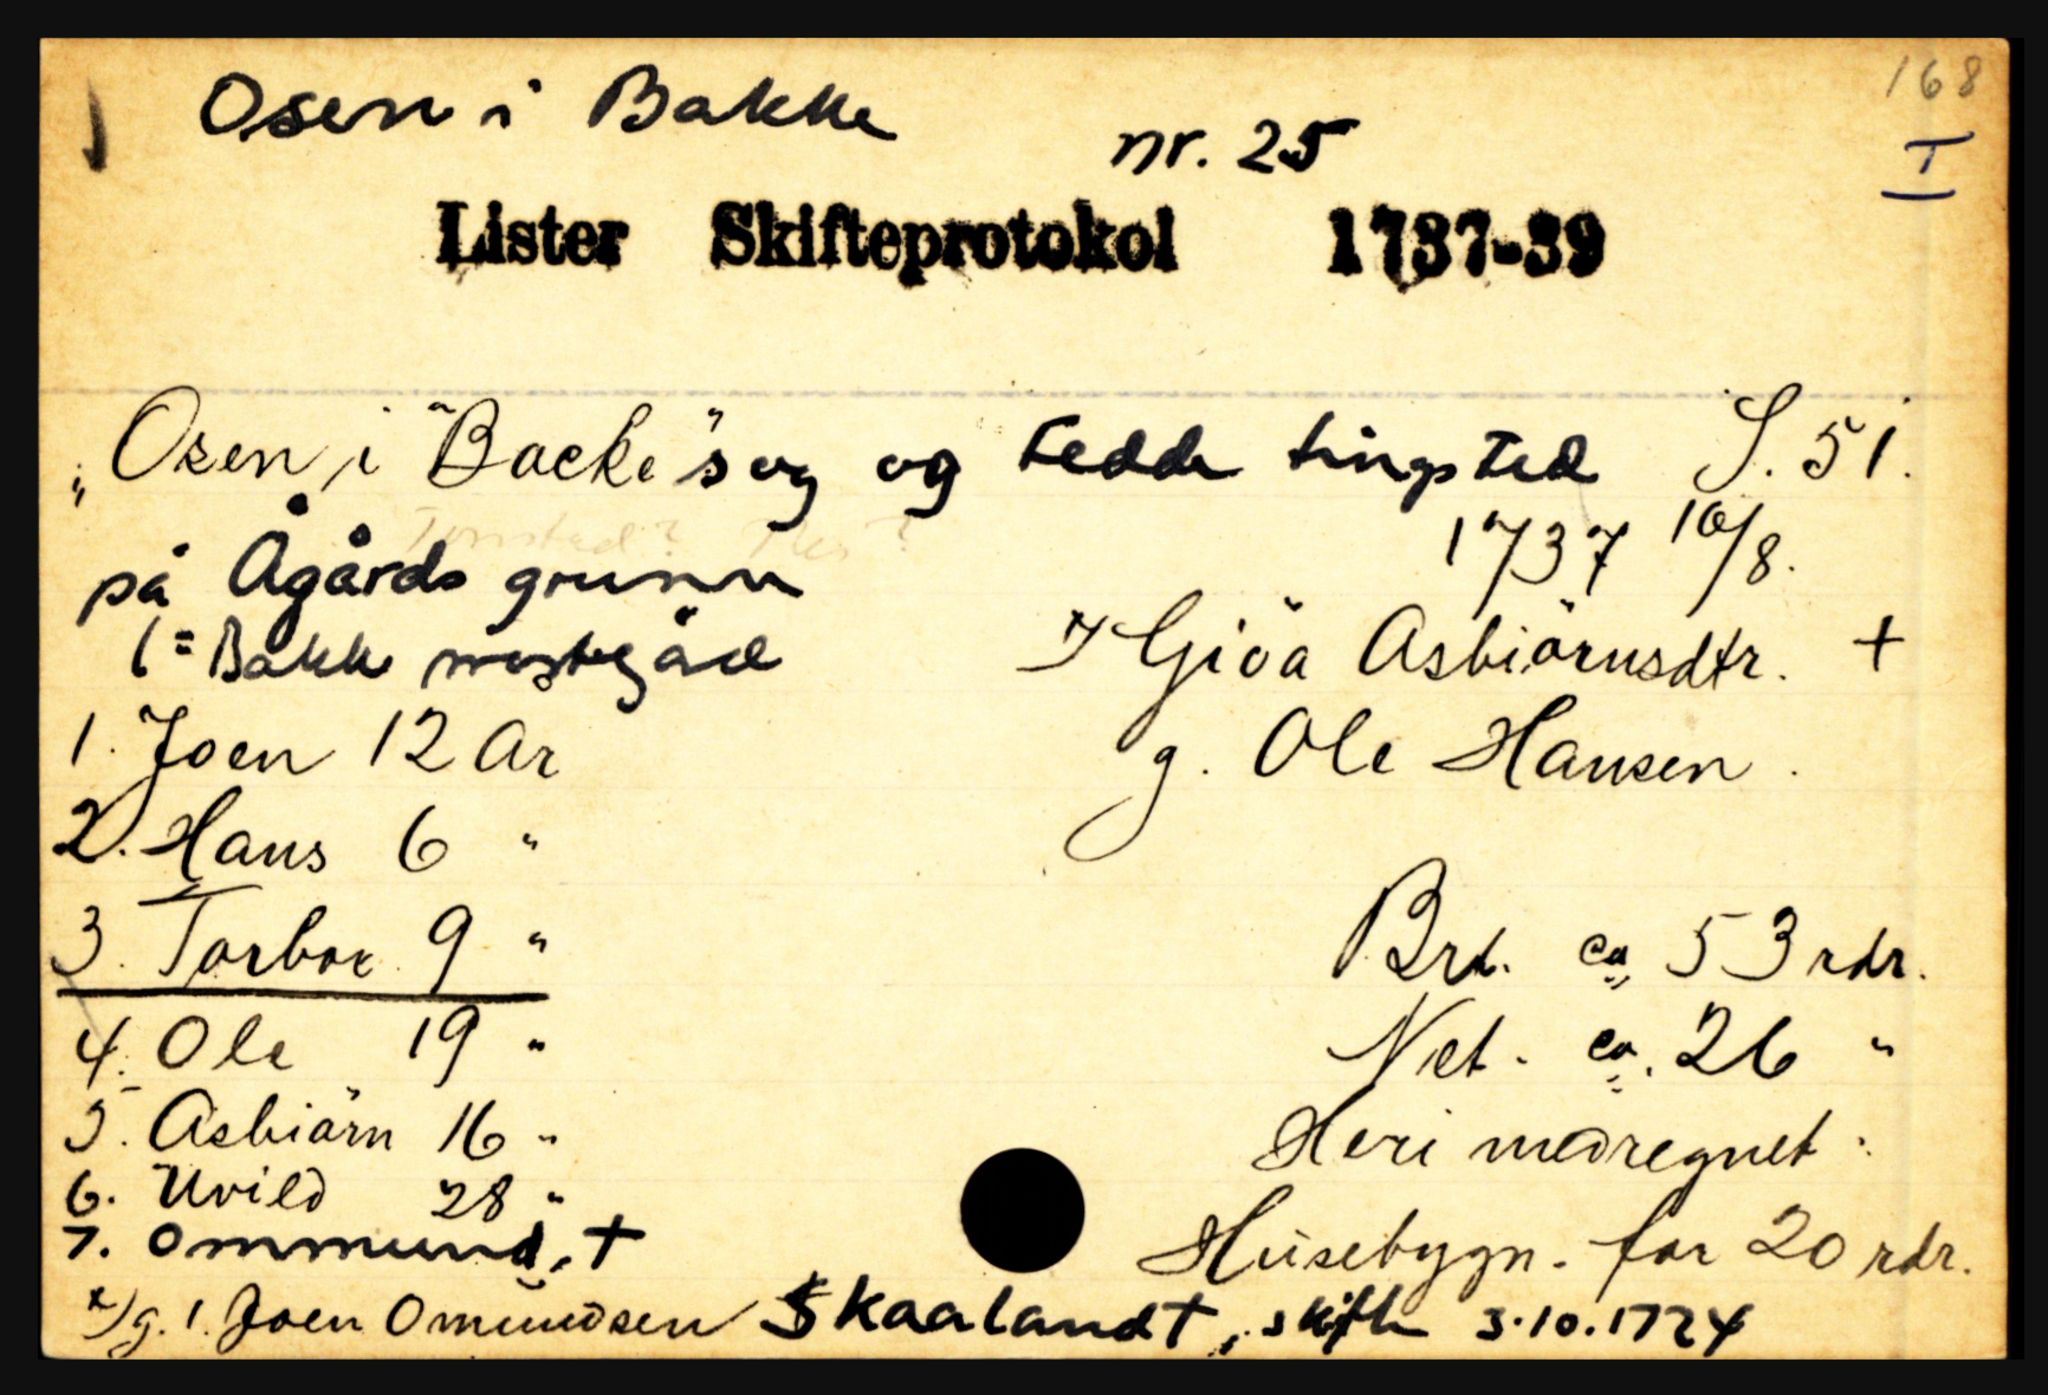 168
Osen i Bakke
nr. 25
I
Lister Skifteprotokol 1737-39
"Osen i Backe" sog og Fedde tingsted S. 51.
1737 16/8.
på Ågårds grunn
(= Bakke prestegård
x) Giöa Asbiörnsdtr. +
g. Ole Hansen.
1. Joen 12 år
2. Hans 6 "
3. Torbor 9 "
4. Ole 19 "
5. Asbiörn 16 "
6. Uvild 28 "
7. Ommund, +
Brt. ca. 53 rdr.
Net. ca. 26 "
Heri medregnet:
Husebygn. for 20 rdr.
x) g. 1. Joen Omundsen Skaalandt, skifte 3.10.1724